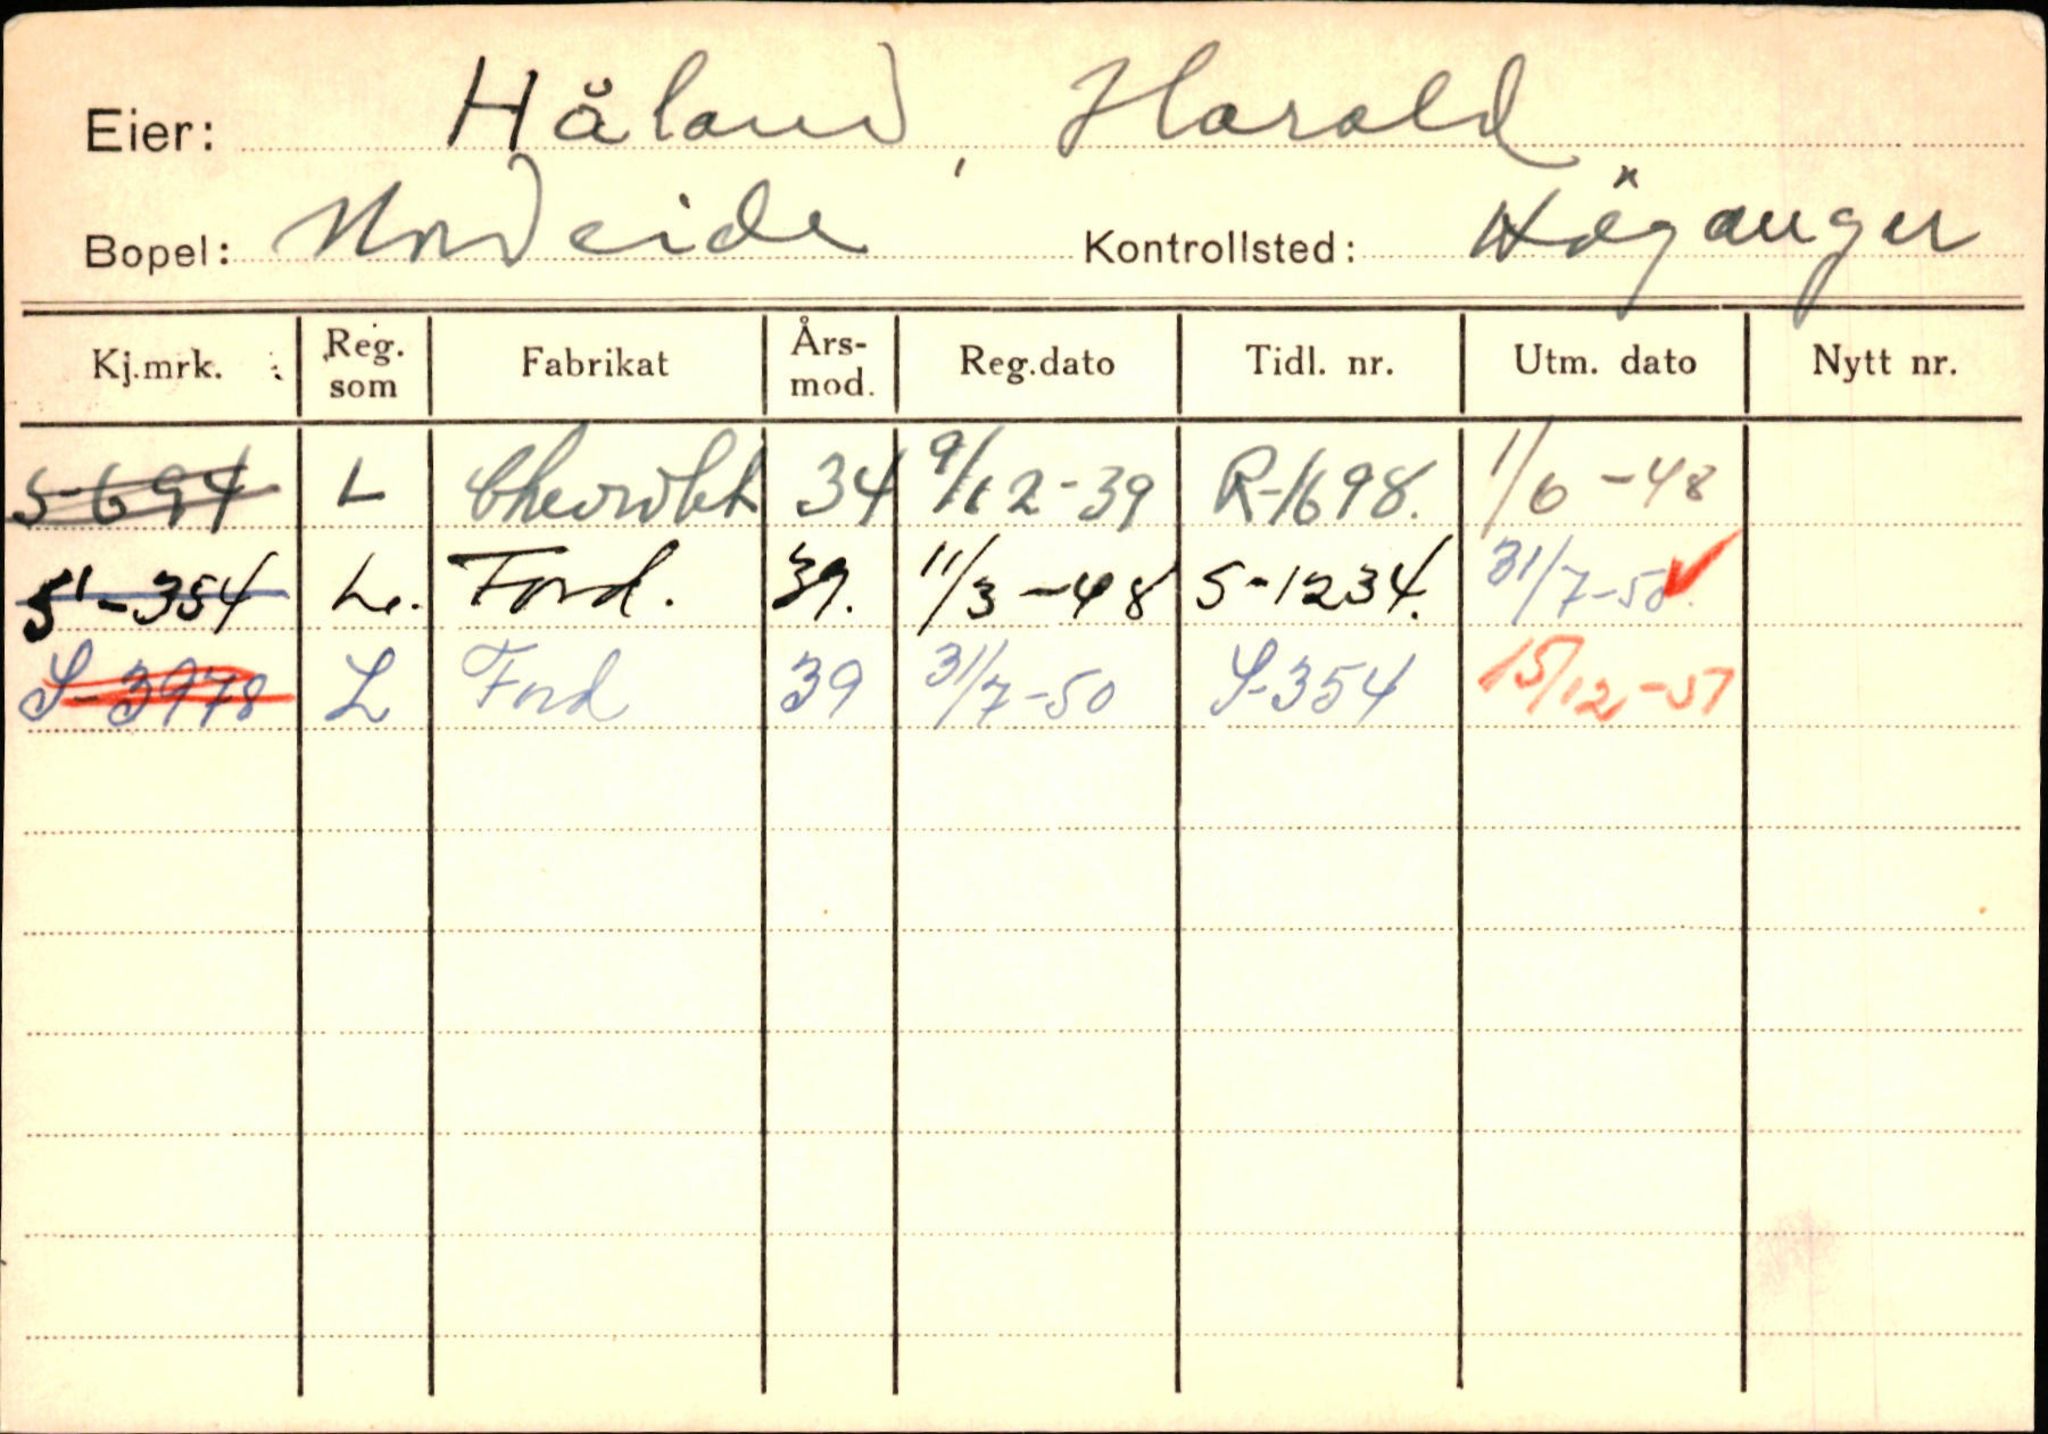 Eier: Håland, Harald
Bopel: Nordeide Kontrollsted: Höyanger
Kj.mrk. Reg. som Fabrikat Års-mod. Reg.dato Tidl. nr. Utm. dato Nytt nr.
S-694 L Chevrolet 34 9/12-39 R-1698. 1/6-48
S-354 L. Ford. 39. 11/3-48 S-1234. 31/7-50.
S-3978 L Ford 39 31/7-50 S-354 15/12-57